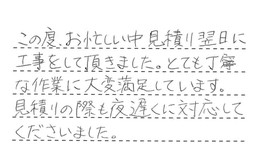 この度、お忙しい中見積り翌日に
工事をして頂きました。とても丁寧
な作業に大変満足しています。
見積りの際も夜遅くに対応して
くださいました。